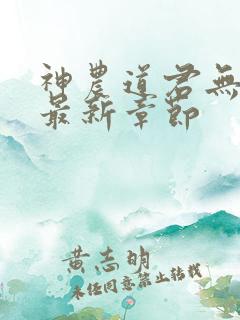 神農道君無
最新章節
黃志明
未經同意禁止轉載